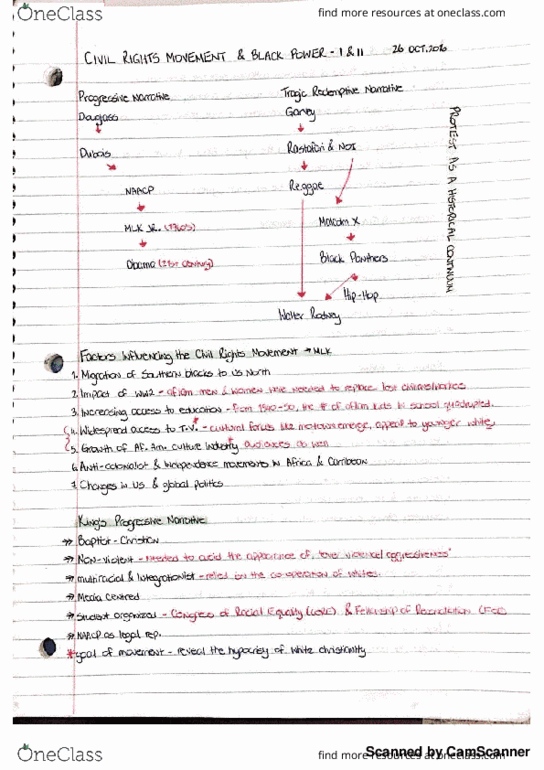 OneClass
find more resources at oneclass.com
CIVIL RIGHTS MOVEMENT & BLACK POWER - I & II 26 OCT. 2016
Progressive Narrative
Tragic Redemptive Narrative
Douglass
Garvey
Dubois
Rastafari & NOI
Reggae
NAACP
Malcolm X
MLK Jr. (1960s)
Black Panthers
Obama (21st Century)
Hip-Hop
Walter Rodney
PROTEST AS A HISTORICAL CONTINUUM
Factors Influencing the Civil Rights Movement → MLK
1. Migration of Southern blacks to US North
2. Impact of WW2 - afram men & women were needed to replace lost
3. Increasing access to education - from 1940-50, the # of afram kids in school quadrupled.
4. Widespread access to T.V. - cultural forces like motown emerge, appeal to younger white
5. Growth of Af. Am. culture industry audiences as well
6. Anti-colonialist & independence movements in Africa & Caribbean
7. Changes in US & global politics
King's Progressive Narrative
→ Baptist - Christian
→ Non-violent - needed to avoid the appearance of
→ multiracial & integrationist - relied on the co-operation of whites.
→ Media Centred
→ Student organized - Congress of Racial Equality (CORE) & Fellowship of
→ NAACP as legal rep.
* goal of movement - reveal the hypocrisy of white christianity
OneClass
find more resources at oneclass.com
Scanned by CamScanner